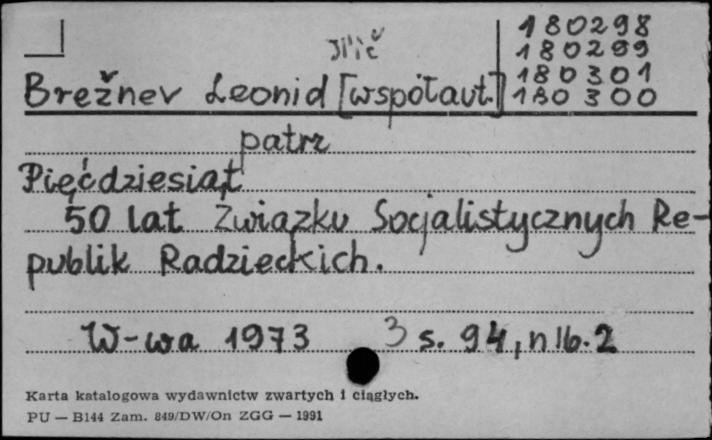 Ilič
Brežnev Leonid [współaut.]
180298
180299
180301
180300
patrz
Pięćdziesiąt
50 lat Związku Socjalistycznych Re-
publik Radzieckich.
W-wa 1973 3 s. 94, nlb. 2
Karta katalogowa wydawnictw zwartych i ciągłych.
PU — B144 Zam. 849/DW/On ZGG — 1991